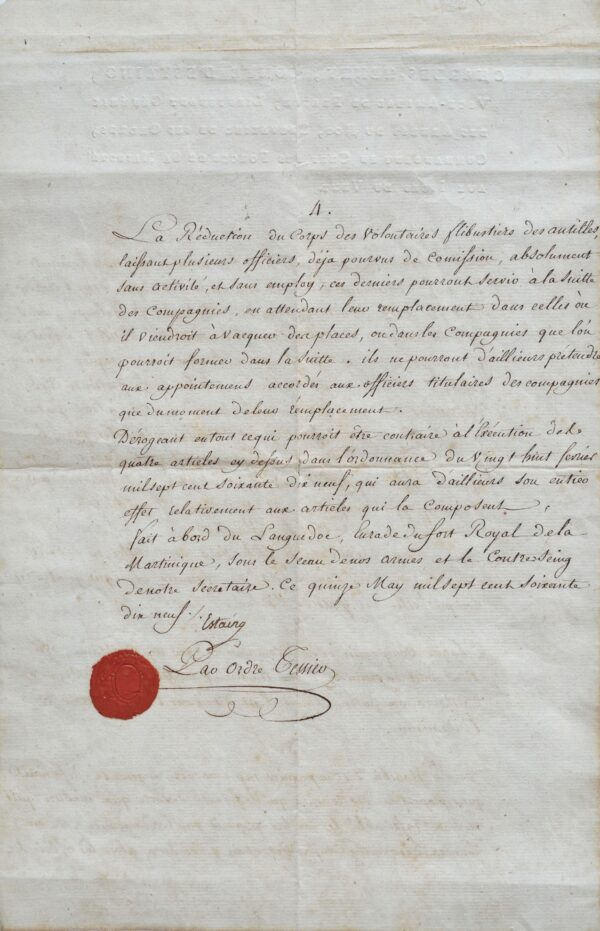 4.
La Réduction du Corps des Volontaires flibustiers des antilles,
laissant plusieurs officiers, déja pourvus de Comission, absolument
sans activité, et sans employ; ces derniers pourront servir à la Suitte
des Compagnies, en attendant leur remplacement dans celles où
il viendroit à vacquer des places, ou dans les Compagnies que l'on
pourroit former dans la Suitte. ils ne pourront d'aillieurs prétendre
aux appointemens accordés aux officiers titulaires des compagnies
que du moment de leur remplacement.
Dérogeant en tout ce qui pourroit être contraire à l'Exécution des
quatre articles cy dessus dans l'ordonnance du Vingt huit fevrier
mil sept cent soixante dix neuf, qui aura d'aillieurs son entier
effet relativement aux articles qui la Composent.
fait à bord du Languedoc, en rade du fort Royal de la
Martinique, sous le Sceau de nos armes et le Contre Seing
de notre Secretaire. Ce quinze May mil sept cent soixante
dix neuf ./.
Estaing
Par Ordre Tessier